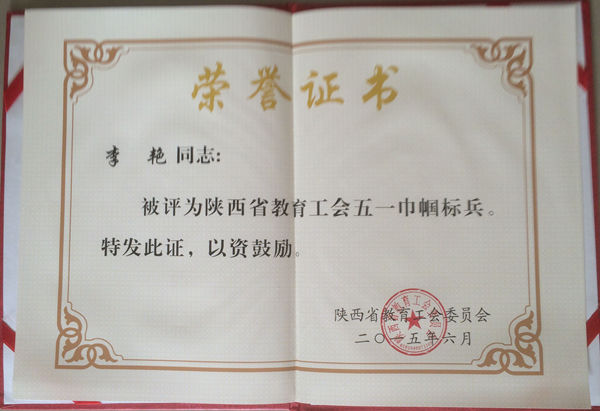 荣誉证书
李 艳 同志:
被评为陕西省教育工会五一巾帼标兵。
特发此证，以资鼓励。
陕西省教育工会委员会
二〇一五年六月